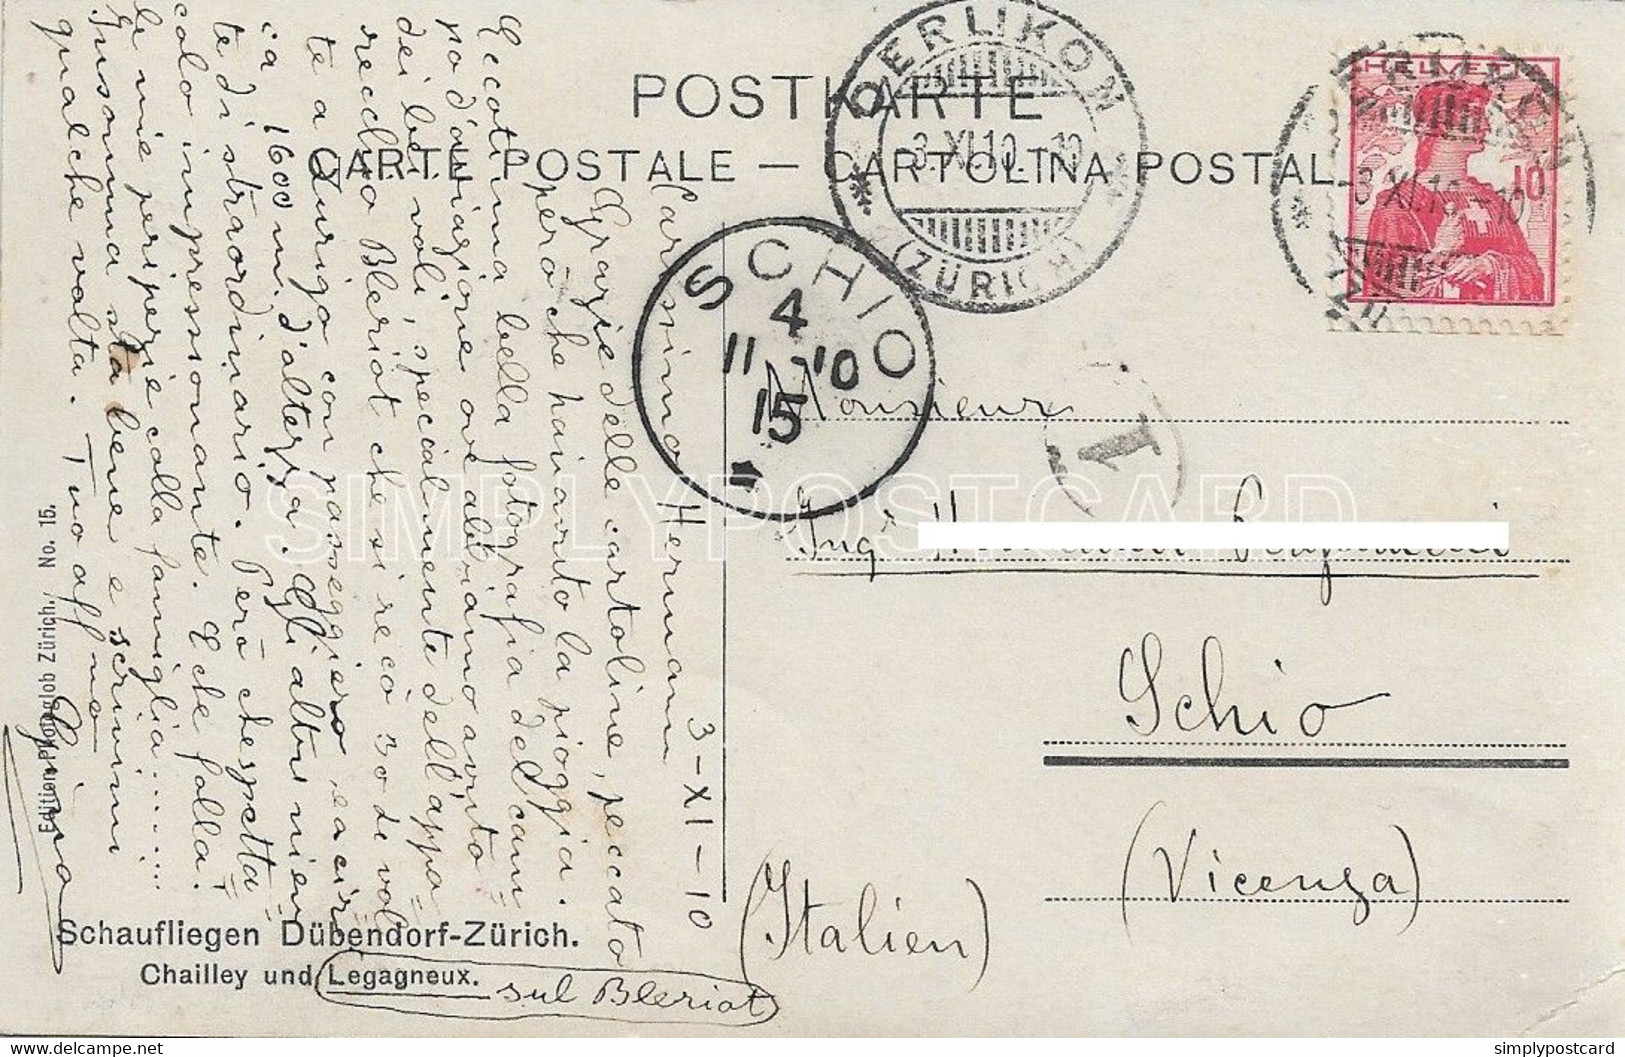 POSTKARTE
CARTE POSTALE — CARTOLINA POSTAL
OERLIKON
-3.XI.10.-10
(ZÜRICH)
HELVETIA
10
OERLIKON
-3.XI.10.-10
SCHIO
4
11 -10
15
1
3-XI-10
Carissimo Hermann
Grazie delle cartoline, peccato
però che hai avuto la pioggia.
Eccoti una bella fotografia del cam
po d'aviazione ove abbiamo avuto
dei bei voli, specialmente dell'appa
recchio Bleriot che si recò 3 o 4 vol
te a Zurigo con passeggiero e a cir
ca 1600 m. d'altezza. Gli altri nien
te di straordinario. Però che spetta
colo impressionante. E che folla!
le mie peripezie colla famiglia........
Insomma sta bene e scrivimi
qualche volta. Tuo affmo
Monsieur
Ing
Schio
(Vicenza)
(Italien)
Edition Photoglob Zürich. No. 15.
Schaufliegen Dübendorf-Zürich.
Chailley und Legagneux. sul Bleriot
SIMPLYPOSTCARD
Postcards > Topics simplypostcard